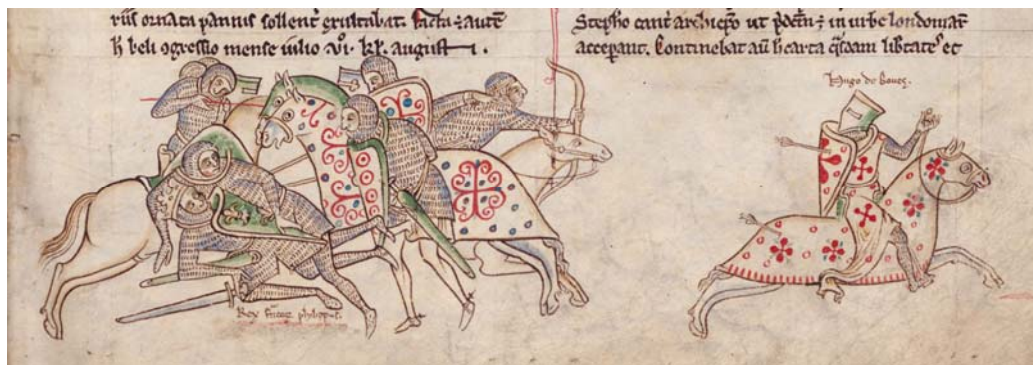 riis ornata pannis sollenť exultabat. facta ÷ autē
h̄ beli ꝯgressio mense iulio .vi. kł. augusti.
Stepħo canť archiepō ut p̄dcm̄ ÷ in urbe londoniaꝝ
acceperant. Continebat aū h̄ carta qͣsdam libtateˢ et
Hugo de boueˢ.
Rex